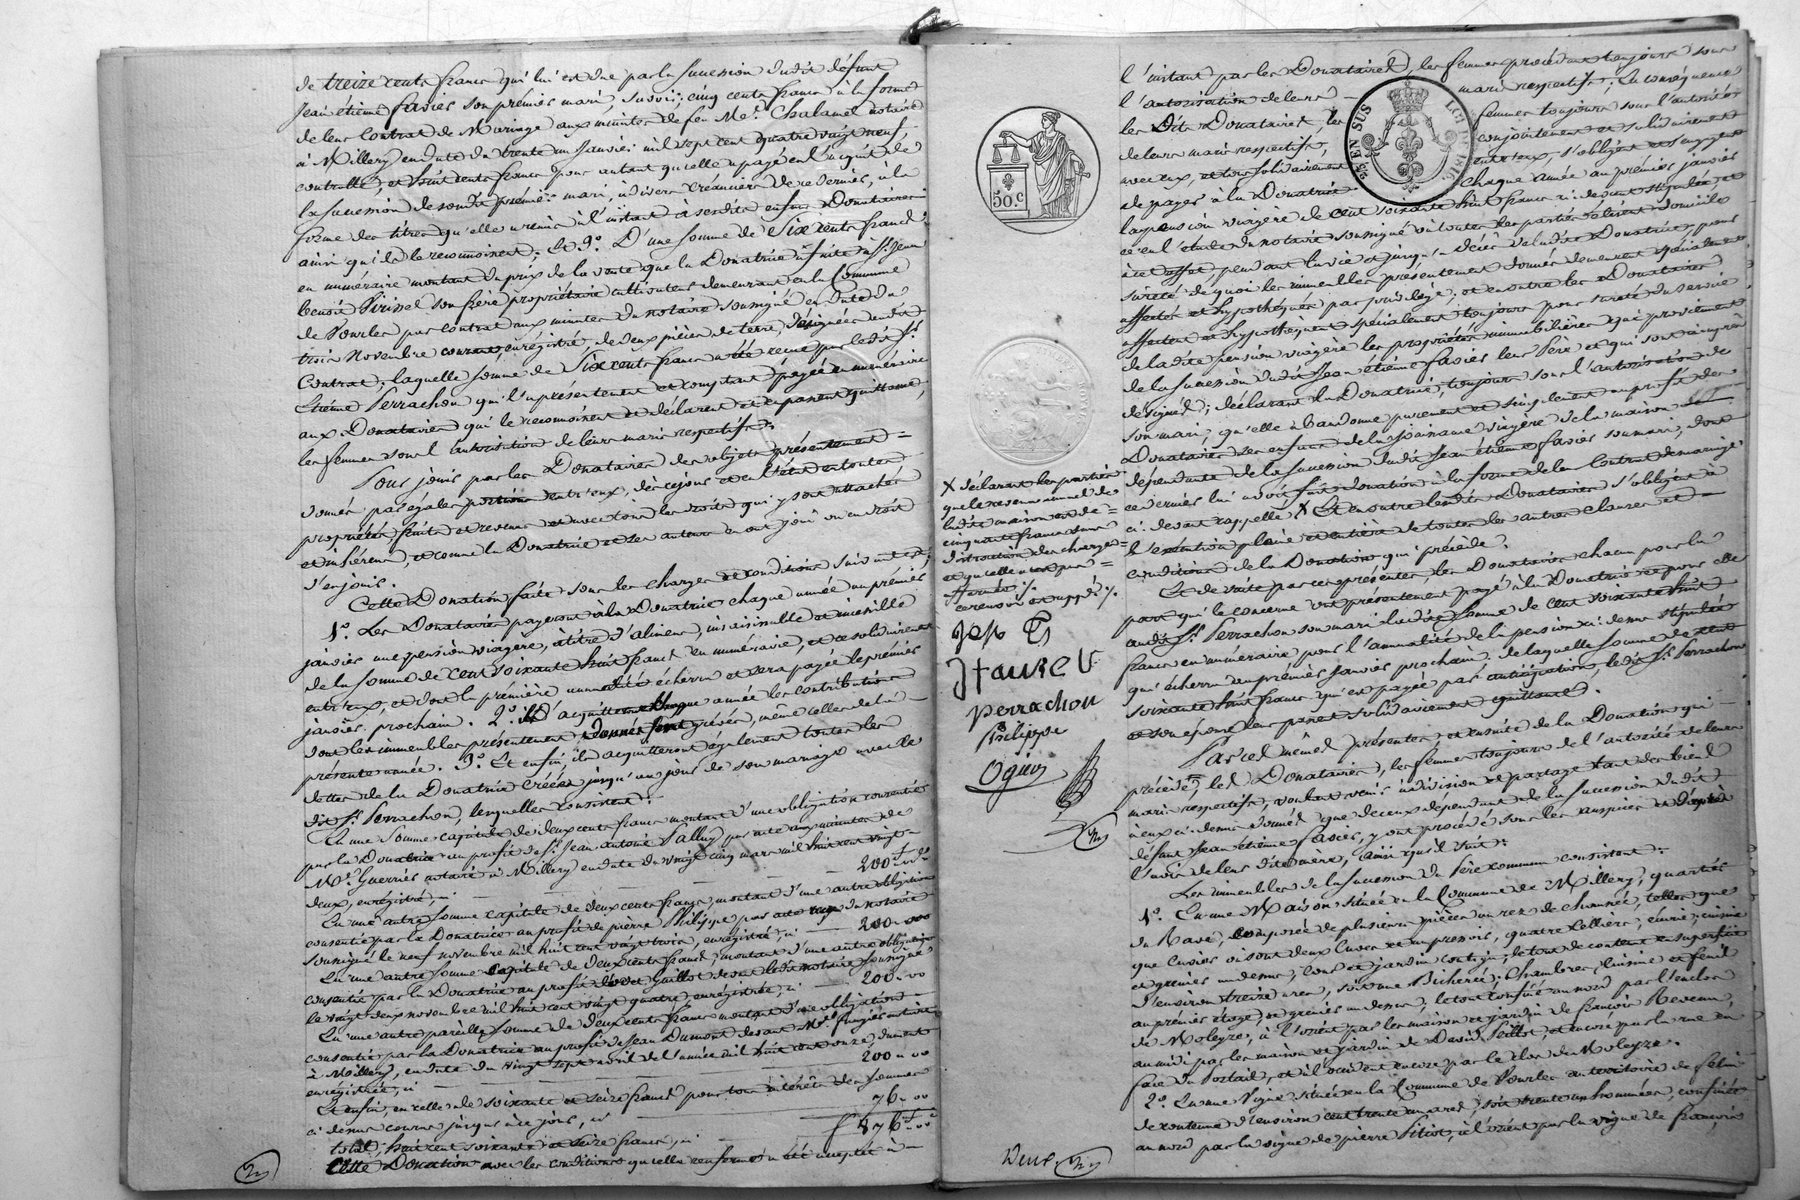 de treize cents francs qui lui est due par la succession dudit défunt
Jean étienne favier son premier mari, savoir; cinq cents francs à la forme
de leur Contrat de Mariage aux minutes de feu Me. Chalamel notaire
à Millery en date du trente un Janvier mil sept cent quatre vingt neuf,
contrôllé, et huit cents francs pour autant qu'elle a payé en l'acquit de
la succession de son dit premier mari, à divers créanciers de ce dernier, à la
forme des titres qu'elle a remis à l'instant à sesdits enfans Donataires
ainsi qu'ils le reconnoissent; Et 9o. D'une somme de Six cents francs
en numéraire montant du prix de la vente que la Donatrice a faite à Sr. Jean
benoit son frère propriétaire cultivateur demeurant en la Commune
de Vourles par contrat aux minutes du notaire soussigné en date du
trois Novembre courant, enregistré, de deux pièces de terre, désignées audit
Contrat, laquelle somme de Six cents francs a été reçue par ledit Sr.
Etiènne Perrachon qui l'a présentement et comptant payée en numéraire
aux Donataires qui le reconnoissent et déclarent et en passent quittance,
les femmes sous l'autorisation de leurs maris respectifs.
Pour jouir par les Donataires des objets présentement
donnés, par égales portions entr'eux, dès ce jour et en l'état en toute
propriété, fruits et revenus et avec tous les droits qui y sont attachés
et inhérens, et comme la Donatrice et ses auteurs en ont joui ou en droit
d'en jouir.
Cette Donation faite sous les charges et conditions suivantes;
1o. Les Donataires payeront à la Donatrice chaque année au premier
janvier une pension viagère, à titre d'alimens, insaisissable et incessible
de la somme de cent soixante huit francs en numéraire, et ce solidairement
entr'eux, et dont la première année écherra et sera payée le premier
janvier prochain. 2o. D'acquitter chaque année les contributions
dont les immeubles présentement donnés sont grévés, même celles de la
présente année. 3o. Et enfin, ils acquitteront également toutes les
dettes de la Donatrice créées jusqu'au jour de son mariage avec le
dit Sr. Perrachon, lesquelles consistent:
En une Somme capitale de deux cents francs montant d'une obligation consentie
par la Donatrice au profit de Sr. Jean antoine par acte aux minutes de
Me. Guerrier notaire à Millery en date du vingt cinq mars mil huit cent vingt
deux, enregistré, ci — 200 f 00 c
En une autre somme capitale de deux cents francs, montant d'une autre obligation
consentie par la Donatrice au profit de pierre Philippe par acte reçu du notaire
soussigné le neuf novembre mil huit cent vingt trois, enregistré, ci — 200 .. 00
En une autre somme capitale de deux cents francs, montant d'une autre obligation
consentie par la Donatrice au profit de Guillot devant ledit notaire soussigné
le vingt deux novembre mil huit cent vingt quatre, enregistrée, ci — 200 .. 00
En une autre pareille somme de deux cents francs montant d'une obligation
consentie par la Donatrice au profit de Jean Dumont devant Me. notaire
à Millery, en date du vingt sept avril de l'année mil huit cent onze, dument
enregistrée, ci — 200 .. 00
Et enfin, en celle de soixante et seize francs pour tous intérêts des sommes
ci dessus courus jusqu'à ce jour, ci — 76 .. 00
total, huit cent soixante et seize francs, ci — 876 f 00 c
Cette Donation avec les conditions qu'elle renferme a été acceptée à
50 c
25 EN SUS
LOI DE 1816
X déclarant les parties
que le revenu annuel de
ladite maison est de
cinquante francs sans
distraction des charges
et qu'elle n'est pas
affermée ./.
ce renvoi est appé. ./.
Jef
J favie
perrachon
Philippe
Ogier
l'instant par les Donataires, les femmes procédant toujours sous
l'autorisation de leurs maris respectifs; En conséquence
les dits Donataires, les femmes toujours sous l'autorité
de leurs maris respectifs, conjointement et solidairement
avec eux, et tous solidairement entr'eux, s'obligent
de payer à la Donatrice chaque année au premier janvier
la pension viagère de cent soixante huit francs ci devant stipulée, et
ce en l'étude du notaire soussigné où toutes les parties élisent domicile
à cet effet, pendant la vie et jusqu'au décès de ladite Donatrice, pour
sureté de quoi les immeubles présentement donnés demeurent spécialement
affectés et hypothéqués par privilège, et en outre les Donataires
affectent et hypothèquent spécialement toujours pour sureté du service
de ladite pension viagère les propriétés immobilières qui proviennent
de la succession dudit Jean étienne favier leur père et qui sont ci après
désignées; déclarant la Donatrice, toujours sous l'autorisation de
son mari, qu'elle abandonne purement et simplement au profit des
Donataires ses enfans de la jouissance viagère de la maison
dépendante de la succession dudit Jean étienne favier son mari, dont
ce dernier lui avoit fait donation à la forme de leur Contrat de mariage
ci devant rappellé X Et en outre lesdits Donataires s'obligent à
l'exécution pleine et entière de toutes les autres clauses et
conditions de la Donation qui précède.
Et de suite par ces présentes, les Donataires chacun pour la
part qui le concerne ont présentement payé à la Donatrice et pour elle
audit Sr. Perrachon son mari ladite somme de cent soixante huit
francs en numéraire, pour l'annualité de la pension ci dessus stipulée
qui écherra au premier janvier prochain, de laquelle somme de cent
soixante huit francs qui est payée par anticipation, ledit Sr. Perrachon
et son épouse leur passent solidairement quittance.
Par ces mêmes présentes et ensuite de la Donation qui
précède, les Donataires, les femmes toujours de l'autorité de leurs
maris respectifs, voulant venir à division et partage tant des biens
à eux ci dessus donnés que de ceux dépendant de la succession dudit
défunt Jean étienne favier, y ont procédé sous les auspices et d'après
l'avis de leur dite mère, ainsi qu'il suit:
Les immeubles de la succession du Père commun consistent:
1o. En une Maison située en la Commune de Millery, quartier
du Ravé, composée de plusieurs pièces au rez de chaussée, telles que
que Cuvier où sont deux Cuves et un pressoir, quatre Celliers, écurie, cuisine
et grenier au dessus; Cour et jardin contigu, le tout de contenu en superficie
d'environ treize ares, soit une Bicherée; Chambres, Cuisine et fenil
au premier étage, et grenier au dessus, le tout confiné au nord par l'enclos
de Moleyre, à l'orient par les maison et jardin de françois Revenu,
au midi par les maison et jardin de David Pellot, et encore par la rue
face du Portail, et à l'occident encore par le clos de Moleyre.
2o. En une Vigne située en la Commune de Vourles au territoire de
de contenue d'environ cent trente un ares, soit trente un hommées, confinée
au nord par la vigne de pierre, à l'orient par la vigne de françois